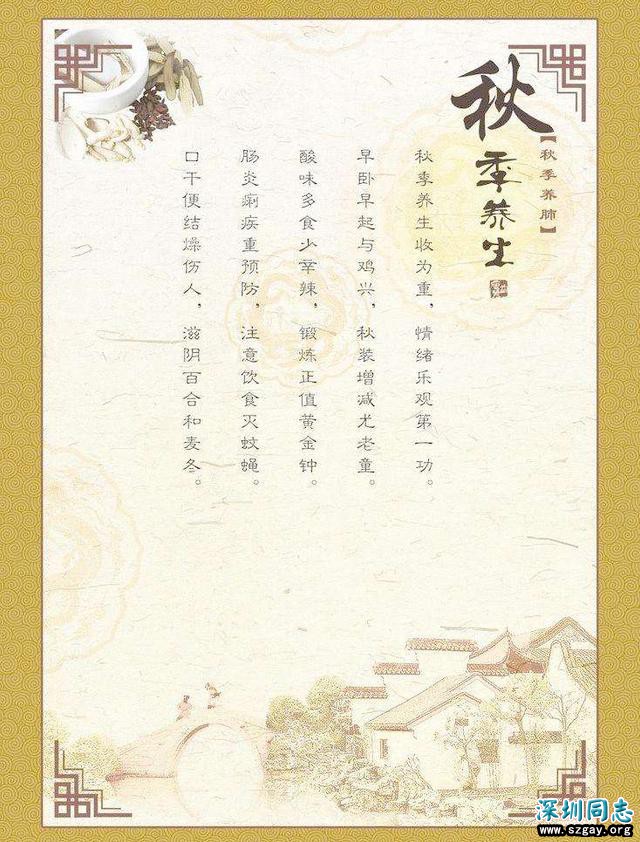 秋季养生
【秋季养肺】
秋季养生收为重，情绪乐观第一功。
早卧早起与鸡兴，秋装增减尤老童。
酸味多食少辛辣，锻炼正值黄金钟。
肠炎痢疾重预防，注意饮食灭蚊蝇。
口干便结燥伤人，滋阴百合和麦冬。
深圳同志
www.szgay.org